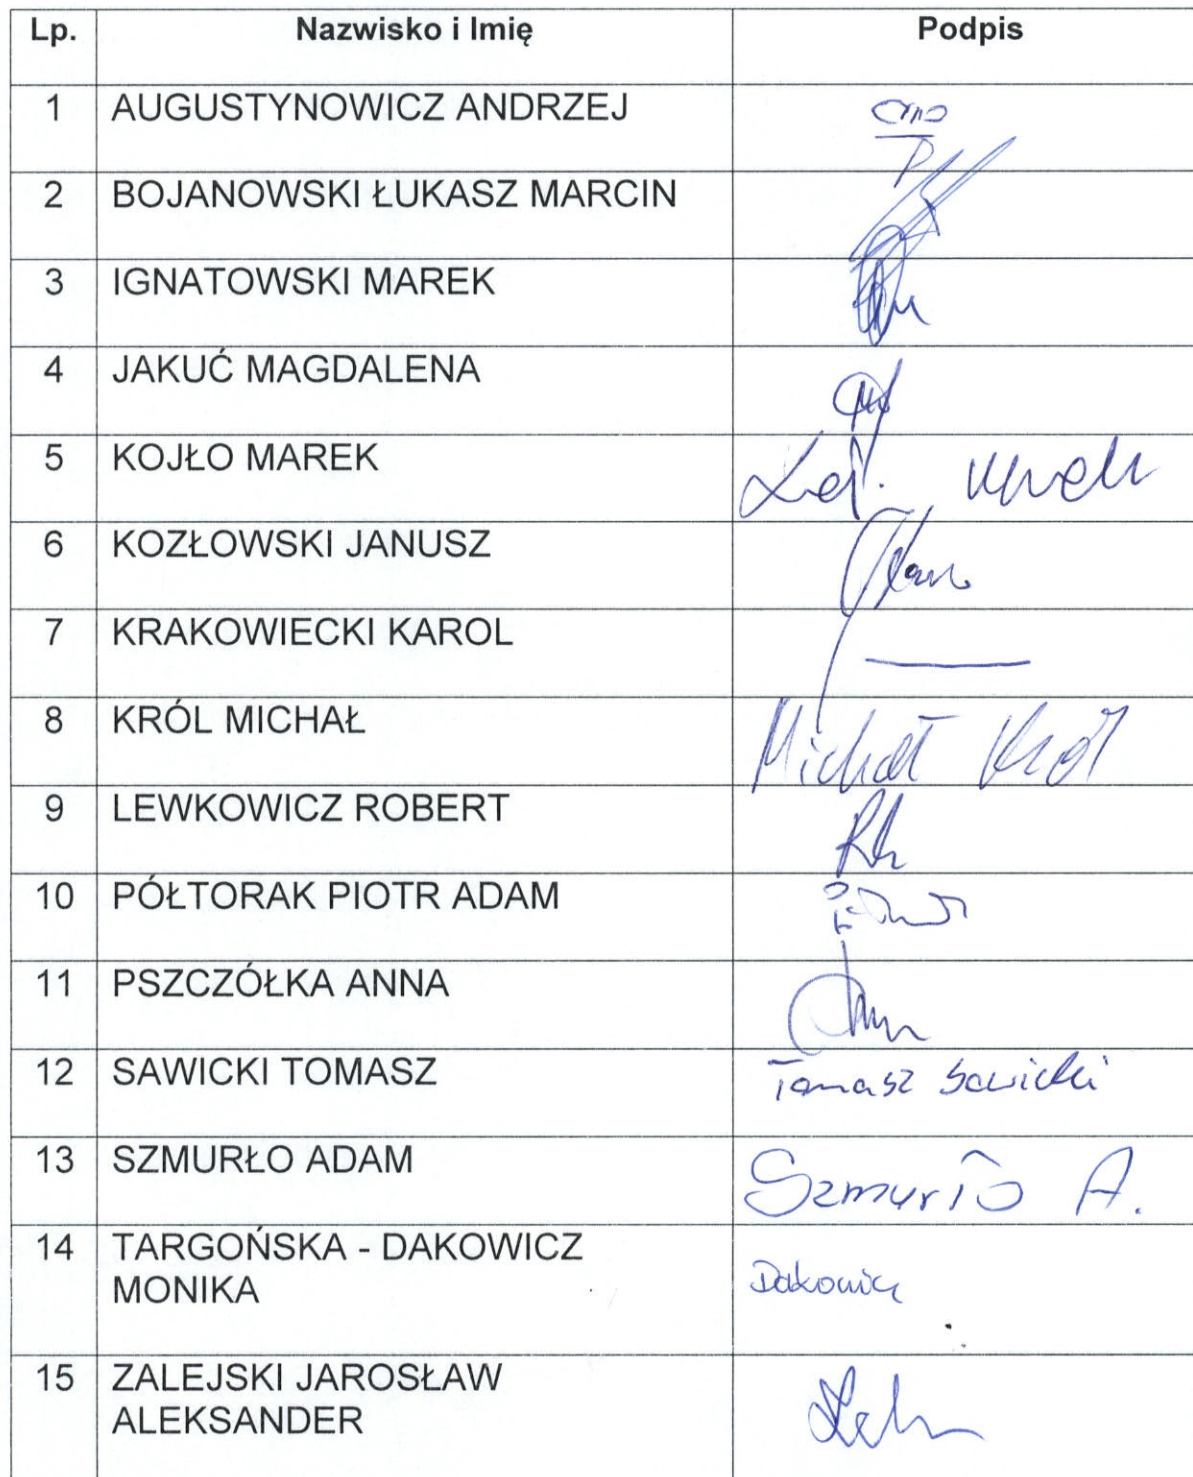 Lp. Nazwisko i Imię Podpis
1 AUGUSTYNOWICZ ANDRZEJ
2 BOJANOWSKI ŁUKASZ MARCIN
3 IGNATOWSKI MAREK
4 JAKUĆ MAGDALENA
5 KOJŁO MAREK
6 KOZŁOWSKI JANUSZ
7 KRAKOWIECKI KAROL
8 KRÓL MICHAŁ Michał Król
9 LEWKOWICZ ROBERT
10 PÓŁTORAK PIOTR ADAM
11 PSZCZÓŁKA ANNA
12 SAWICKI TOMASZ Tomasz Sawicki
13 SZMURŁO ADAM Szmurło A.
14 TARGOŃSKA - DAKOWICZ
MONIKA Dakowicz
15 ZALEJSKI JAROSŁAW
ALEKSANDER